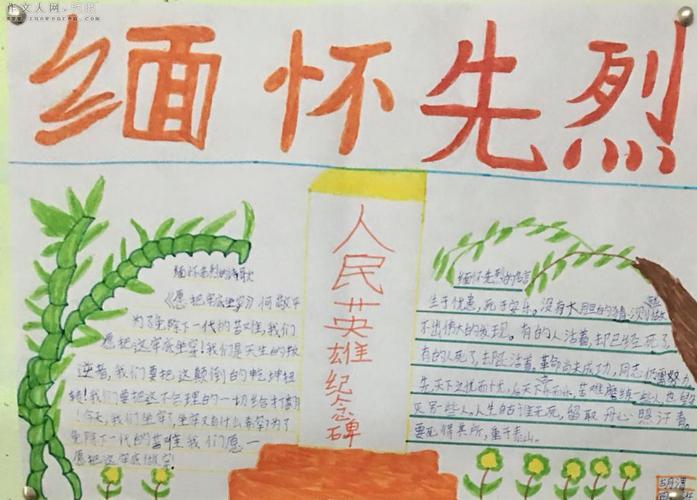 作文人网
www.zuowenren.com
缅怀先烈
人民英雄纪念碑
缅怀先烈的诗歌
《愿把牢底坐穿》何敬平
为了免除下一代的苦难，我们
愿把这牢底坐穿！我们是天生的叛
逆者，我们要把这颠倒的乾坤扭
转！我们要把这不合理的一切给打翻
！今天，我们坐牢了，坐牢又有什么希罕？为了
免除下一代的苦难 我们愿一
愿把这牢底坐穿
缅怀先烈的名言
生于忧患，死于安乐。没有大胆的猜测就做
不出伟大的发现。有的人活着，却已经死了，
有的人死了却还活着。革命尚未成功，同志仍需努力
先天下之忧而忧，后天下之乐而乐。苦难磨练一些人，也
灭另一些人。人生自古谁无死，留取丹心照汗青。
要死得其所，重于泰山。